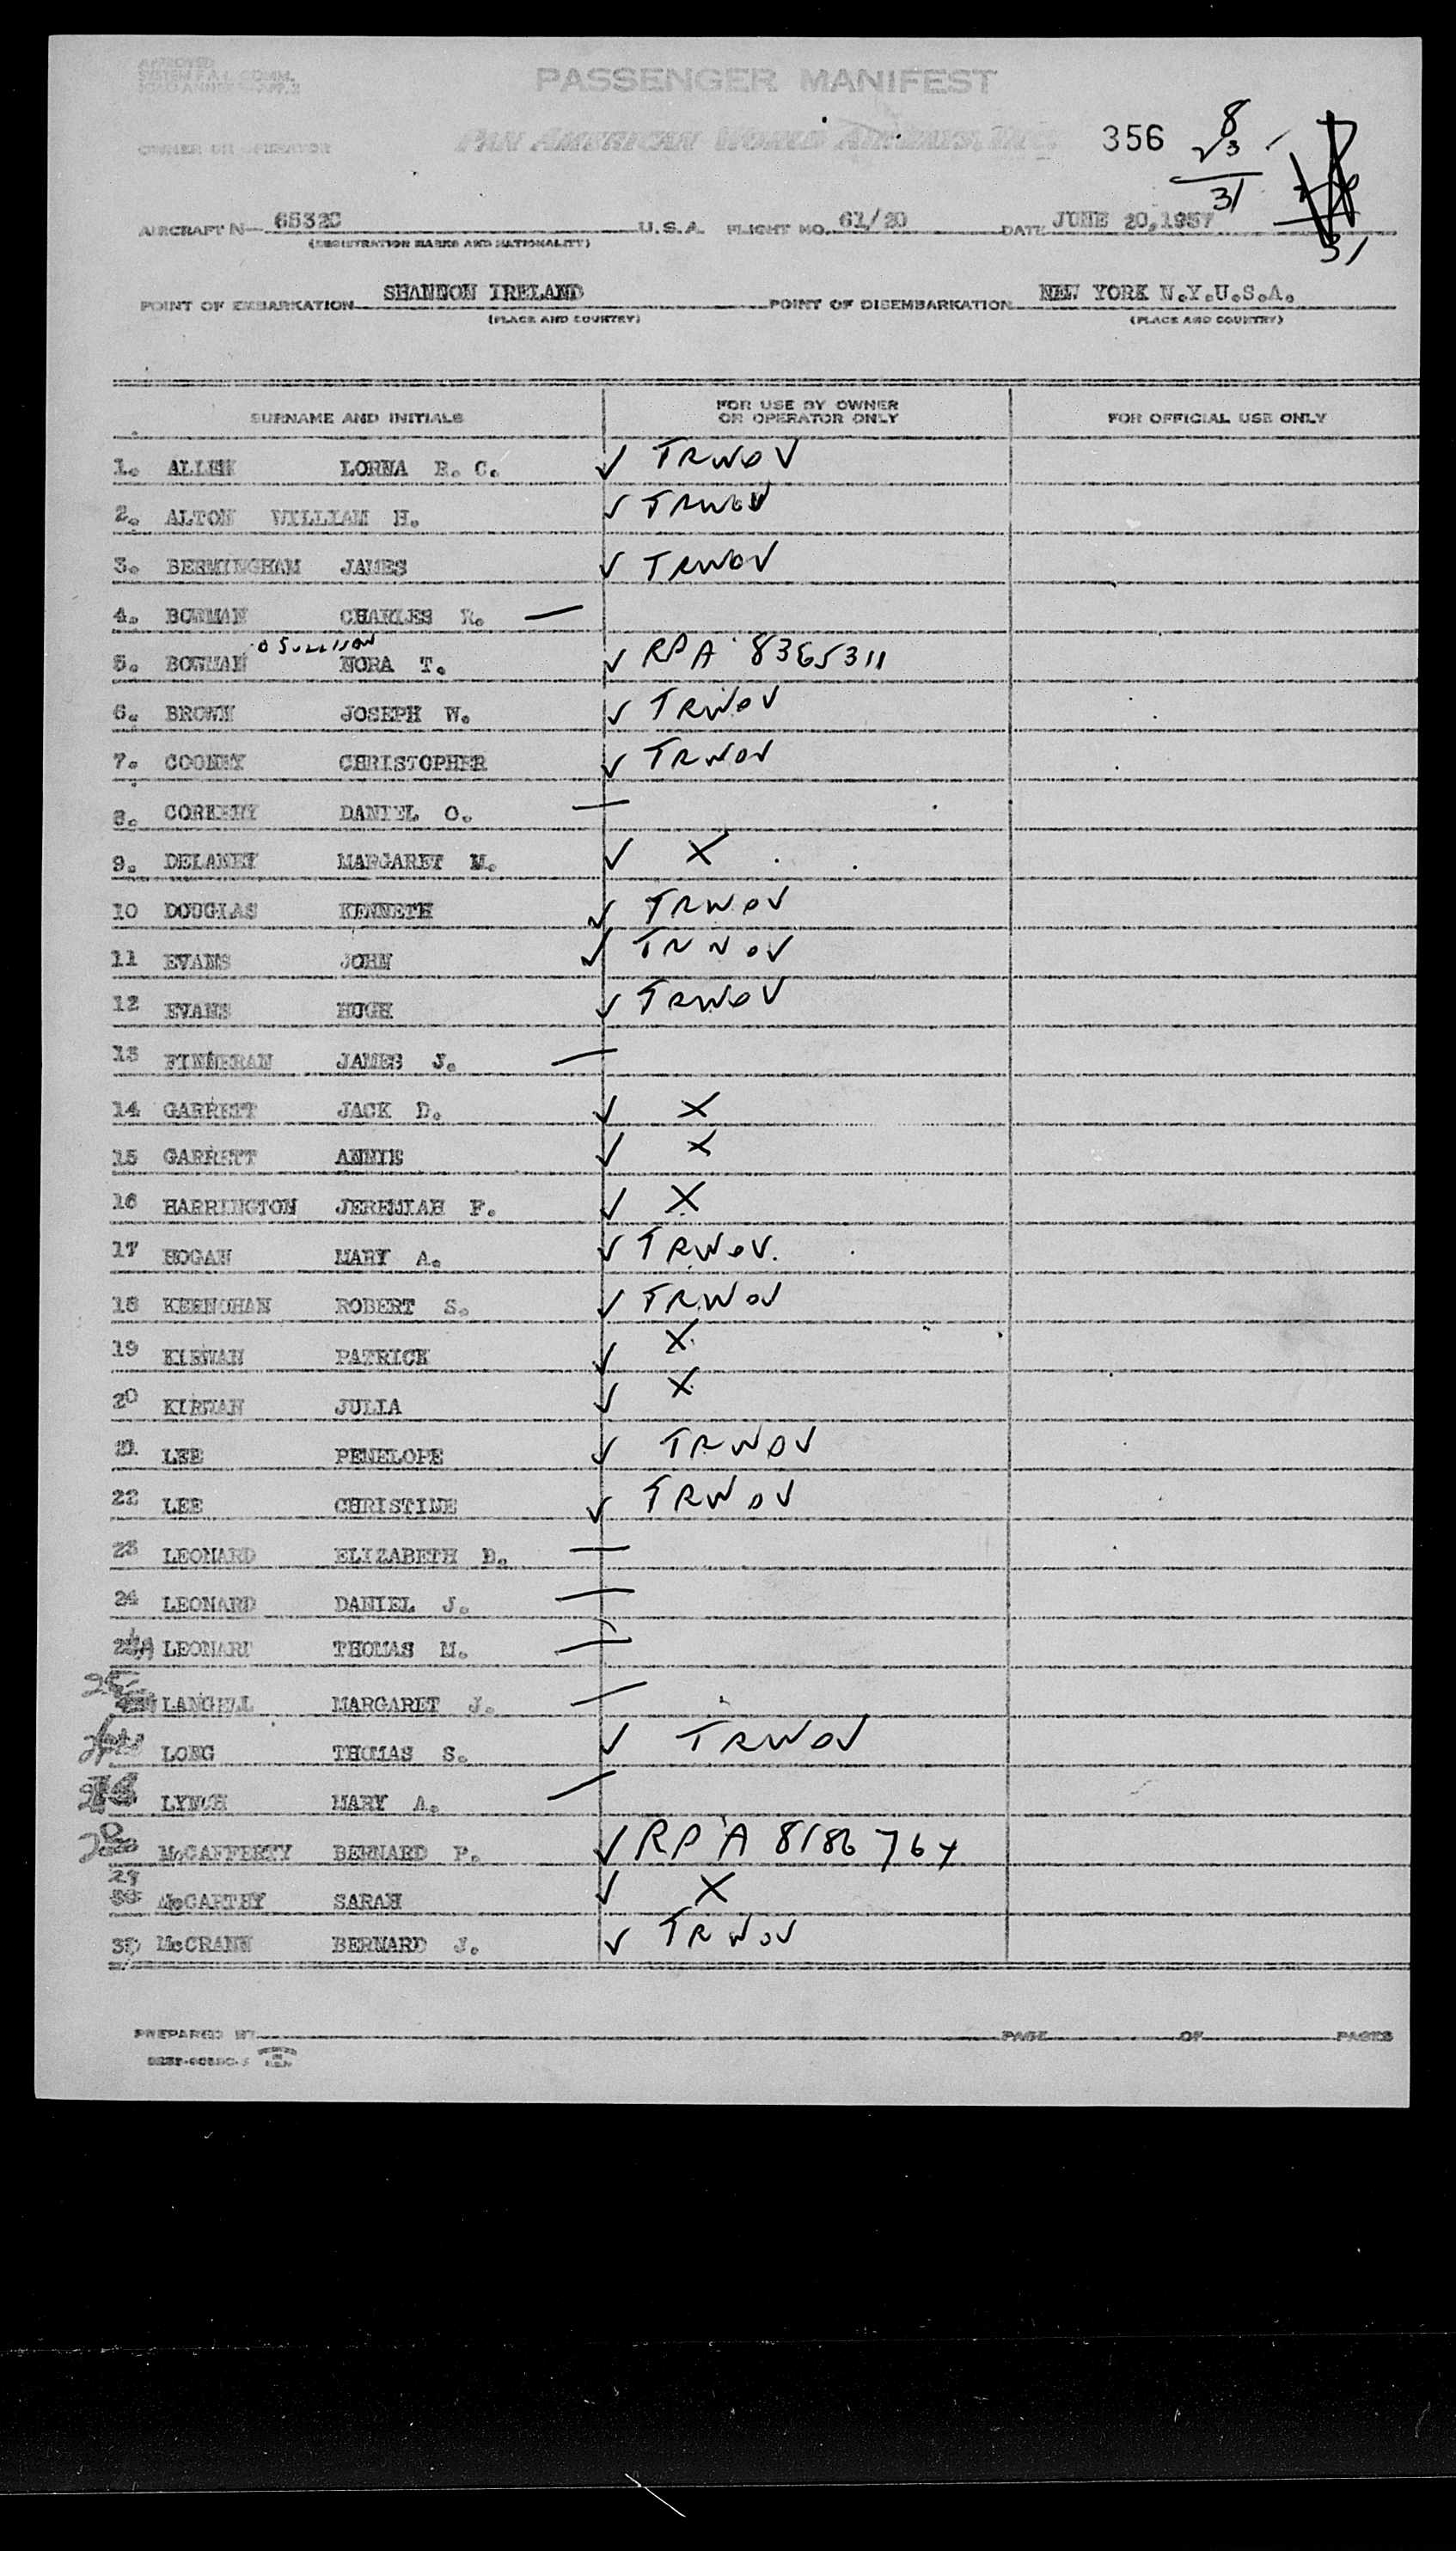 APPROVED
SYSTEM F.A.L. COMM.
PASSENGER MANIFEST
PAN AMERICAN WORLD AIRWAYS, INC.
356 8
√3
31
OWNER OR OPERATOR
31
AIRCRAFT N— 6532C U.S.A. FLIGHT NO. 61/20 DATE JUNE 20,1957
(REGISTRATION MARKS AND NATIONALITY)
POINT OF EMBARKATION SHANNON IRELAND POINT OF DISEMBARKATION NEW YORK N.Y.U.S.A.
(PLACE AND COUNTRY) (PLACE AND COUNTRY)
SURNAME AND INITIALS FOR USE BY OWNER OR OPERATOR ONLY FOR OFFICIAL USE ONLY
1. ALLEN LORNA R. C. ✓ TRWOV
2. ALTON WILLIAM H. ✓ TRWOV
3. BERMINGHAM JAMES ✓ TRWOV
4. BOWMAN CHARLES R. —
O SULLIVAN
5. BOWMAN NORA T. ✓ RPA 8365311
6. BROWN JOSEPH W. ✓ TRWOV
7. COONEY CHRISTOPHER ✓ TRWOV
8. CORKERY DANIEL O. —
9. DELANEY MARGARET M. ✓ X
10 DOUGLAS KENNETH ✓ TRWOV
11 EVANS JOHN ✓ TRWOV
12 EVANS HUGH ✓ TRWOV
13 FINNERAN JAMES J. —
14 GARRETT JACK D. ✓ X
15 GARRETT ANNIE ✓ X
16 HARRINGTON JEREMIAH F. ✓ X
17 HOGAN MARY A. ✓ TRWOV.
18 KERNOHAN ROBERT S. ✓ TRWOV
19 KIRWAN PATRICK ✓ X
20 KIRWAN JULIA ✓ X
21 LEE PENELOPE ✓ TRWOV
22 LEE CHRISTINE ✓ TRWOV
23 LEONARD ELIZABETH D. —
24 LEONARD DANIEL J. —
24A LEONARD THOMAS M. —
25 LANGELL MARGARET J. —
26 LONG THOMAS S. ✓ TRWOV
LYNCH MARY A. —
28 McCAFFERTY BERNARD P. ✓ RPA 8186764
29 McCARTHY SARAH ✓ X
30 McCRANN BERNARD J. ✓ TRWOV
PREPARED BY PAGE OF PAGES